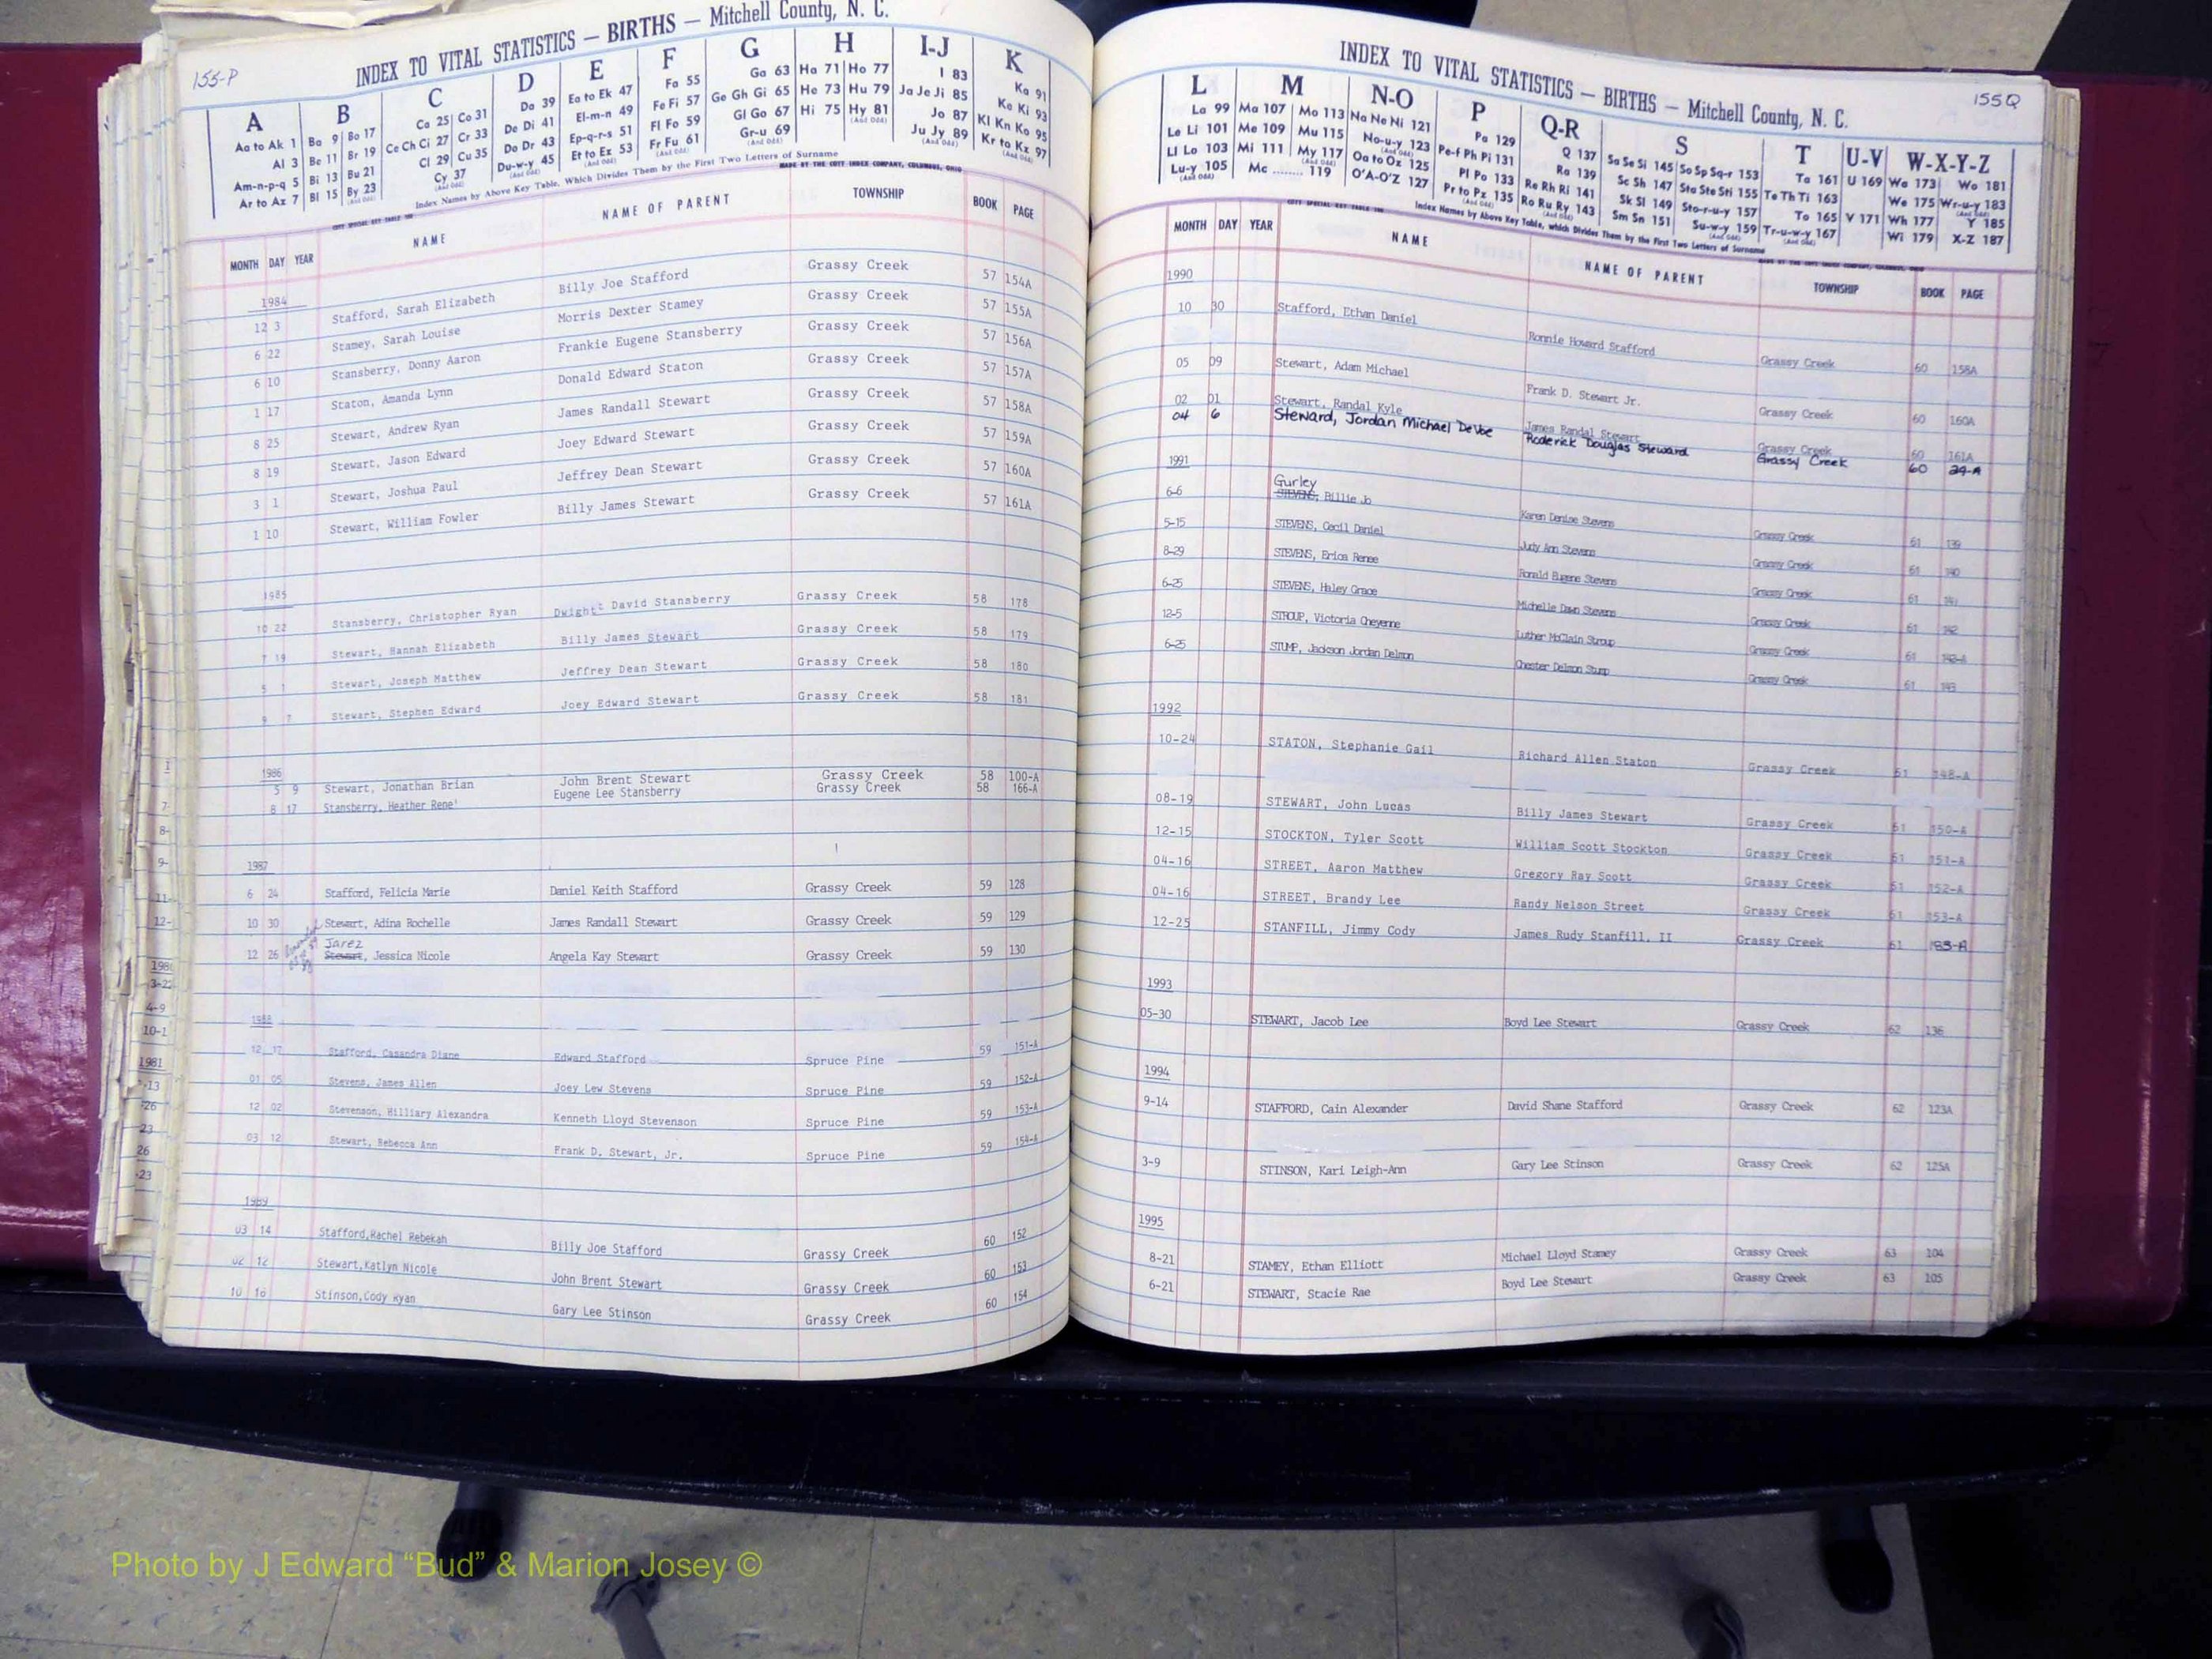 155-P
INDEX TO VITAL STATISTICS — BIRTHS — Mitchell County, N. C.
A B C D E F G H I-J K
Aa to Ak 1 Ba 9 Bo 17 Ca 25 Co 31 Da 39 Ea to Ek 47 Fa 55 Ga 63 Ha 71 Ho 77 I 83 Ka 91
Al 3 Be 11 Br 19 Ce Ch Ci 27 Cr 33 De Di 41 El-m-n 49 Fe Fi 57 Ge Gh Gi 65 He 73 Hu 79 Ja Je Ji 85 Ke Ki 93
Am-n-p-q 5 Bi 13 Bu 21 Cl 29 Cu 35 Do Dr 43 Ep-q-r-s 51 Fl Fo 59 Gl Go 67 Hi 75 Hy 81 Jo 87 Kl Kn Ko 95
Ar to Az 7 Bl 15 By 23 Cy 37 Du-w-y 45 Et to Ez 53 Fr Fu 61 Gr-u 69 Ju Jy 89 Kr to Kz 97
Index Names by Above Key Table, Which Divides Them by the First Two Letters of Surname
MADE BY THE COTT INDEX COMPANY, COLUMBUS, OHIO
MONTH DAY YEAR NAME NAME OF PARENT TOWNSHIP BOOK PAGE
1984
12 3 Stafford, Sarah Elizabeth Billy Joe Stafford Grassy Creek 57 154A
6 22 Stamey, Sarah Louise Morris Dexter Stamey Grassy Creek 57 155A
6 10 Stansberry, Donny Aaron Frankie Eugene Stansberry Grassy Creek 57 156A
1 17 Staton, Amanda Lynn Donald Edward Staton Grassy Creek 57 157A
8 25 Stewart, Andrew Ryan James Randall Stewart Grassy Creek 57 158A
8 19 Stewart, Jason Edward Joey Edward Stewart Grassy Creek 57 159A
3 1 Stewart, Joshua Paul Jeffrey Dean Stewart Grassy Creek 57 160A
1 10 Stewart, William Fowler Billy James Stewart Grassy Creek 57 161A
1985
10 22 Stansberry, Christopher Ryan Dwight David Stansberry Grassy Creek 58 178
7 19 Stewart, Hannah Elizabeth Billy James Stewart Grassy Creek 58 179
5 1 Stewart, Joseph Matthew Jeffrey Dean Stewart Grassy Creek 58 180
9 7 Stewart, Stephen Edward Joey Edward Stewart Grassy Creek 58 181
1986
5 9 Stewart, Jonathan Brian John Brent Stewart Grassy Creek 58 100-A
8 17 Stansberry, Heather Rene' Eugene Lee Stansberry Grassy Creek 58 166-A
1987
6 24 Stafford, Felicia Marie Daniel Keith Stafford Grassy Creek 59 128
10 30 Stewart, Adina Rochelle James Randall Stewart Grassy Creek 59 129
Jarez
12 26 Stewart, Jessica Nicole Angela Kay Stewart Grassy Creek 59 130
1988
12 17 Stafford, Casandra Diane Edward Stafford Spruce Pine 59 151-A
01 05 Stevens, James Allen Joey Lew Stevens Spruce Pine 59 152-A
12 02 Stevenson, Hilliary Alexandra Kenneth Lloyd Stevenson Spruce Pine 59 153-A
03 12 Stewart, Rebecca Ann Frank D. Stewart, Jr. Spruce Pine 59 154-A
1989
03 14 Stafford,Rachel Rebekah Billy Joe Stafford Grassy Creek 60 152
02 12 Stewart,Katlyn Nicole John Brent Stewart Grassy Creek 60 153
10 16 Stinson,Cody Ryan Gary Lee Stinson Grassy Creek 60 154
155Q
INDEX TO VITAL STATISTICS — BIRTHS — Mitchell County, N. C.
L M N-O P Q-R S T U-V W-X-Y-Z
La 99 Ma 107 Mo 113 Na Ne Ni 121 Pa 129 Q 137 Sa Se Si 145 So Sp Sq-r 153 Ta 161 U 169 Wa 173 Wo 181
Le Li 101 Me 109 Mu 115 No-u-y 123 Pe-f Ph Pi 131 Ra 139 Sc Sh 147 Sta Ste Sti 155 Te Th Ti 163 We 175 Wr-u-y 183
Ll Lo 103 Mi 111 My 117 Oa to Oz 125 Pl Po 133 Re Rh Ri 141 Sk Sl 149 Sto-r-u-y 157 To 165 V 171 Wh 177 Y 185
Lu-y 105 Mc ........ 119 O'A-O'Z 127 Pr to Pz 135 Ro Ru Ry 143 Sm Sn 151 Su-w-y 159 Tr-u-w-y 167 Wi 179 X-Z 187
Index Names by Above Key Table, which Divides Them by the First Two Letters of Surname
MONTH DAY YEAR NAME NAME OF PARENT TOWNSHIP BOOK PAGE
1990
10 30 Stafford, Ethan Daniel Ronnie Howard Stafford Grassy Creek 60 158A
05 09 Stewart, Adam Michael Frank D. Stewart Jr. Grassy Creek 60 160A
02 01 Stewart, Randal Kyle James Randal Stewart Grassy Creek 60 161A
04 6 Steward, Jordan Michael DeVoe Roderick Douglas Steward Grassy Creek 60 24-A
1991
Gurley
6-6 STEVENS, Billie Jo Karen Denise Stevens Grassy Creek 61 139
5-15 STEVENS, Cecil Daniel Judy Ann Stevens Grassy Creek 61 140
8-29 STEVENS, Erica Renee Ronald Eugene Stevens Grassy Creek 61 141
6-25 STEVENS, Haley Grace Michelle Dawn Stevens Grassy Creek 61 142
12-5 STROUP, Victoria Cheyenne Luther McClain Stroup Grassy Creek 61 142-A
6-25 STUMP, Jackson Jordan Delmon Chester Delmon Stump Grassy Creek 61 143
1992
10-24 STATON, Stephanie Gail Richard Allen Staton Grassy Creek 61 148-A
08-19 STEWART, John Lucas Billy James Stewart Grassy Creek 61 150-A
12-15 STOCKTON, Tyler Scott William Scott Stockton Grassy Creek 61 151-A
04-16 STREET, Aaron Matthew Gregory Ray Scott Grassy Creek 61 152-A
04-16 STREET, Brandy Lee Randy Nelson Street Grassy Creek 61 153-A
12-25 STANFILL, Jimmy Cody James Rudy Stanfill, II Grassy Creek 61 183-A
1993
05-30 STEWART, Jacob Lee Boyd Lee Stewart Grassy Creek 62 136
1994
9-14 STAFFORD, Cain Alexander David Shane Stafford Grassy Creek 62 123A
3-9 STINSON, Kari Leigh-Ann Gary Lee Stinson Grassy Creek 62 125A
1995
8-21 STAMEY, Ethan Elliott Michael Lloyd Stamey Grassy Creek 63 104
6-21 STEWART, Stacie Rae Boyd Lee Stewart Grassy Creek 63 105
Photo by J Edward “Bud” & Marion Josey ©